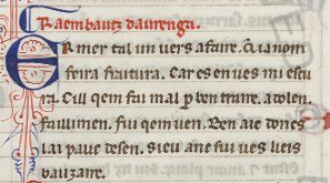 Raembautz daurenga.
ER mer tal un uers afaire. Q ia nom
feira fraitura. Car es en ues mi escu
ra. Cill qem fai mal p ben traire. a dolen.
faillimen. fui qem uen. Ben aie dones
lai paue desen. Sieu ane fui ues lieis
bauzaire.